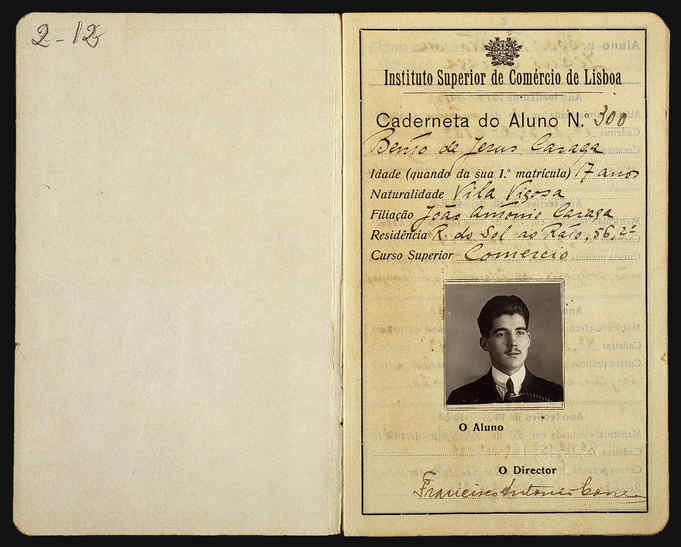 2-12
Instituto Superior de Comércio de Lisboa
Caderneta do Aluno N.º 300
Bento de Jesus Caraça
Idade (quando da sua 1.ª matrícula) 17 anos
Naturalidade Vila Viçosa
Filiação João António Caraça
Residência R. do Sol ao Rato, 56, 2º
Curso Superior Comercio
O Aluno
O Director
Francisco Antonio Correia